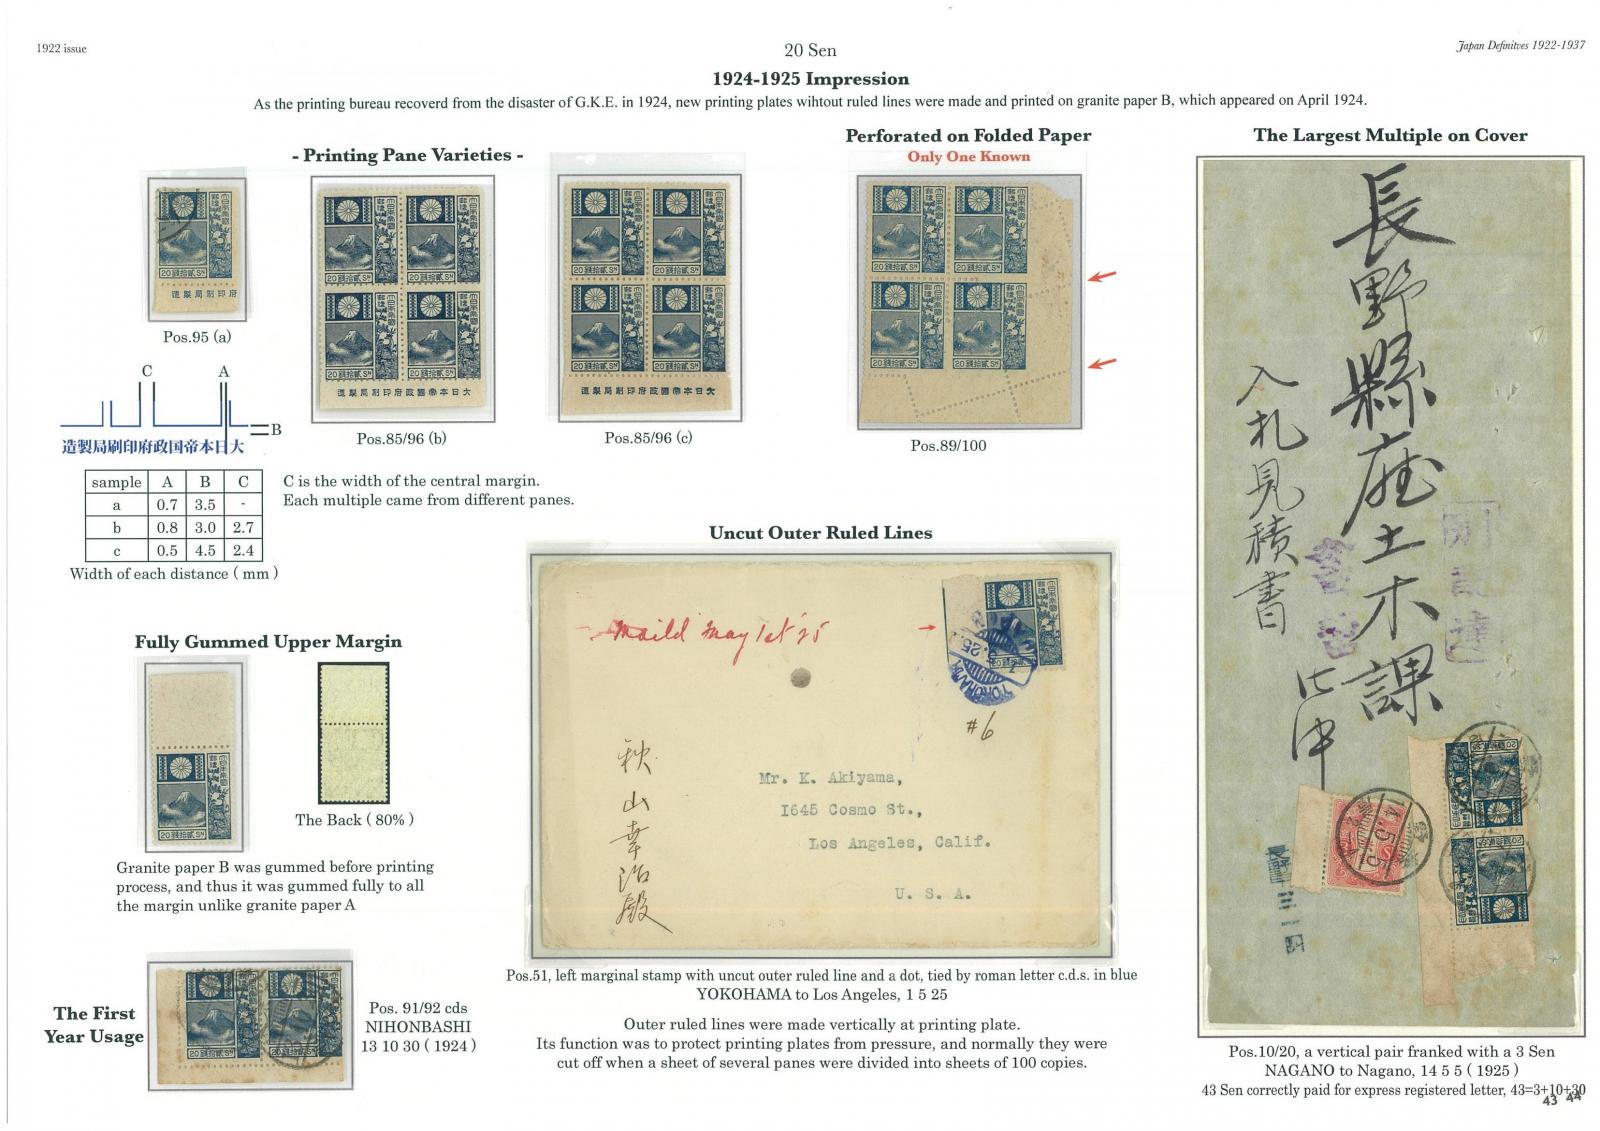 1922 issue
20 Sen
Japan Definitves 1922-1937
1924-1925 Impression
As the printing bureau recoverd from the disaster of G.K.E. in 1924, new printing plates wihtout ruled lines were made and printed on granite paper B, which appeared on April 1924.
- Printing Pane Varieties -
造製局刷印府
Pos.95 (a)
造製局刷印府政國帝本日大
Pos.85/96 (b)
造製局刷印府政國帝本日大
Pos.85/96 (c)
C
A
B
造製局刷印府政国帝本日大
sample A B C
a 0.7 3.5 -
b 0.8 3.0 2.7
c 0.5 4.5 2.4
Width of each distance ( mm )
C is the width of the central margin.
Each multiple came from different panes.
Perforated on Folded Paper
Only One Known
Pos.89/100
Fully Gummed Upper Margin
The Back ( 80% )
Granite paper B was gummed before printing
process, and thus it was gummed fully to all
the margin unlike granite paper A
The First
Year Usage
Pos. 91/92 cds
NIHONBASHI
13 10 30 ( 1924 )
Uncut Outer Ruled Lines
Maild May 1st '25
YOKOHAMA
#6
秋山幸治殿
Mr. K. Akiyama,
1645 Cosmo St.,
Los Angeles, Calif.
U. S. A.
Pos.51, left marginal stamp with uncut outer ruled line and a dot, tied by roman letter c.d.s. in blue
YOKOHAMA to Los Angeles, 1 5 25
Outer ruled lines were made vertically at printing plate.
Its function was to protect printing plates from pressure, and normally they were
cut off when a sheet of several panes were divided into sheets of 100 copies.
The Largest Multiple on Cover
長野縣廳土木課
入札見積書
Pos.10/20, a vertical pair franked with a 3 Sen
NAGANO to Nagano, 14 5 5 ( 1925 )
43 Sen correctly paid for express registered letter, 43=3+10+30
43 44